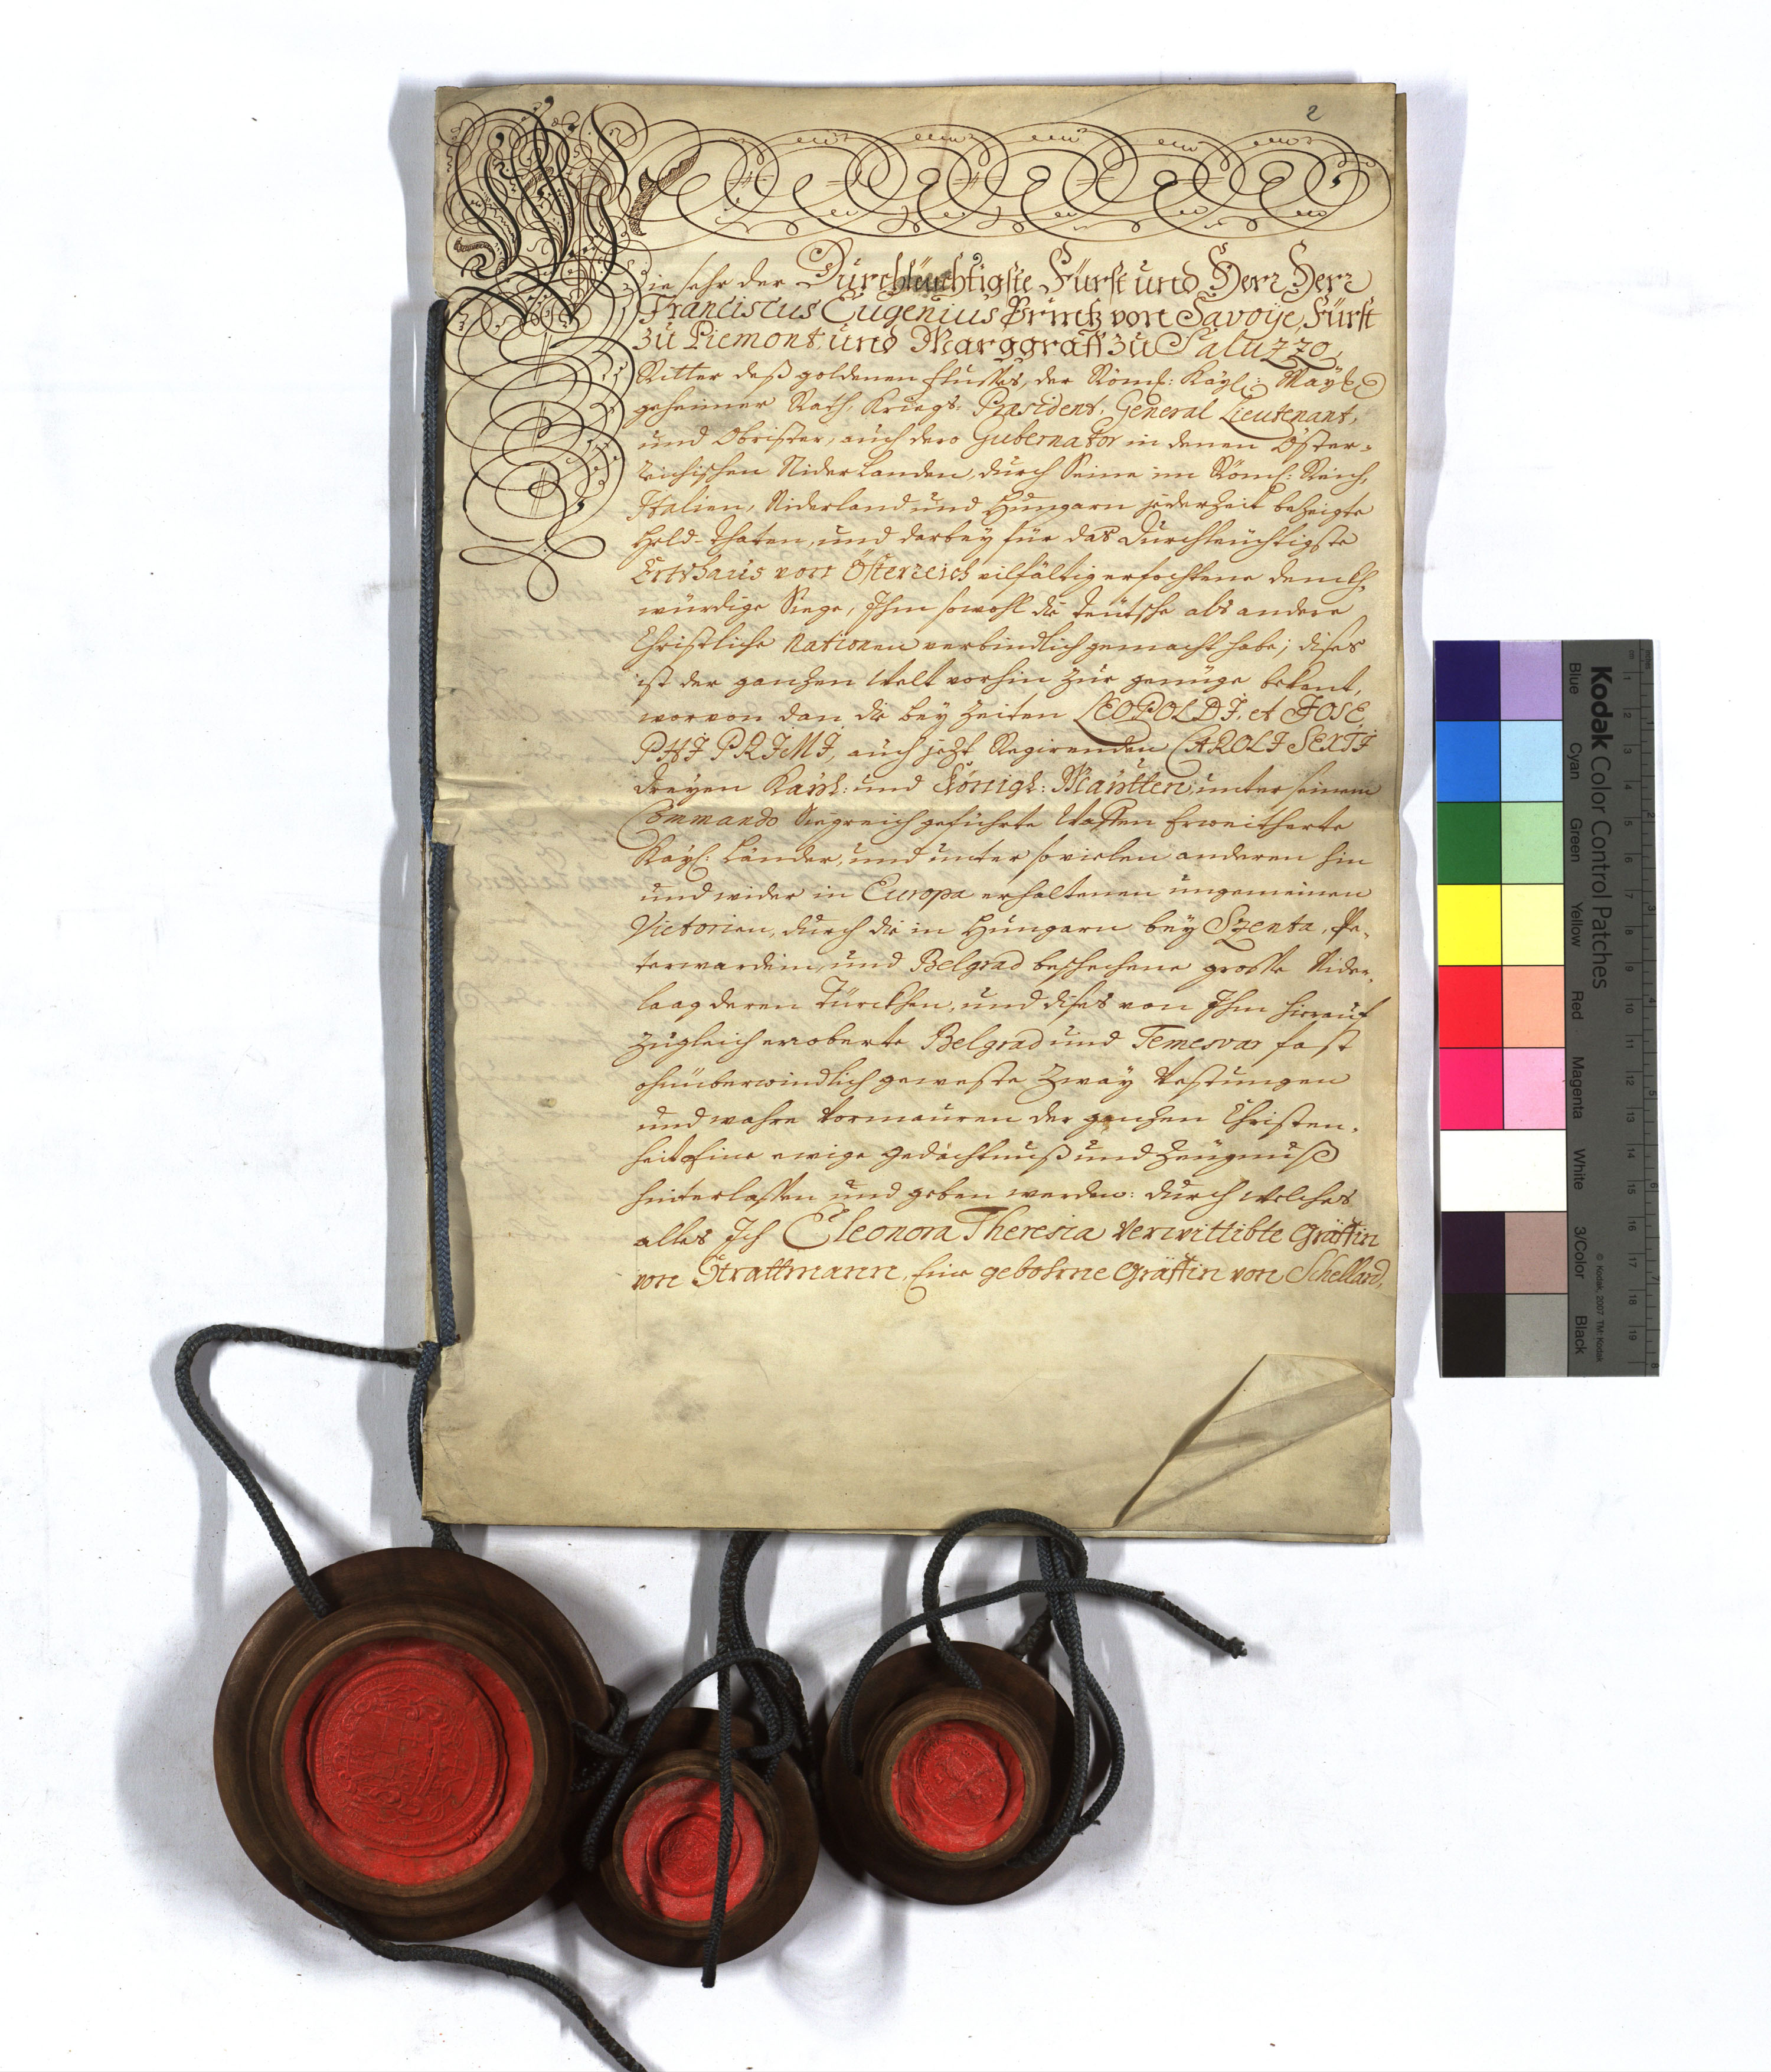 2
Wie sehr der Durchleüchtigste Fürst und Herr Herr
Franciscus Eugenius Printz von Savoÿe, Fürst
zu Piemont, und Marggraff zu Saluzzo,
Ritter deß goldenen Flusses, der Röml: Kaÿl: Maÿt
geheimer Rath, Kriegs-Præsident, General Lieutenant,
und Obrister, auch dero Gubernator in denen Öster-
reichischen Niderlanden, durch Seine im Röml: Reich,
Italien, Niderland und Hungarn jederzeit bezeigte
Held-Thaten, und darbeÿ für das Durchleüchtigste
Ertzhaus von Österreich vilfältig erfochtene denckh-
würdige Siege, Ihm sowohl die Teütsche als andere
Christliche Nationen verbindlich gemacht habe; dises
ist der ganzen Welt vorhin zur genüge bekant,
worvon dan die beÿ Zeiten LEOPOLDI, et JOSE-
PHI PRIMI, auch jezt Regirenden CAROLI SEXTI
dreÿen Kaÿl: und Königl: Maÿtten, unter seinem
Commando Siegreich geführte Waffen Erweitherte
Kaÿl: Länder, und unter sovielen anderen hin
und wider in Europa erhaltenen ungemeinen
Victorien, durch die in Hungarn beÿ Szenta, Pe-
terwardein, und Belgrad beschechene grosse Nider-
laag deren Türckhen, und dises von Ihm hierauf
zugleich eroberte Belgrad und Temesvar fast
ohnüberwindlich geweste Zwaÿ Vestungen
und wahre Vormauren der ganzen Christen-
heit Eine ewige Gedächtnuß und Zeügnuß
hinterlassen und geben werden: durch welches
alles Ich Eleonora Theresia Verwittibte Gräffin
von Strattmann, Eine gebohrne Gräffin von Schellard,
Kodak Color Control Patches
Blue Cyan Green Yellow Red Magenta White 3/Color Black
© Kodak, 2007 TM: Kodak
cm 1 2 3 4 5 6 7 8 9 10 11 12 13 14 15 16 17 18 19
inches 1 2 3 4 5 6 7 8